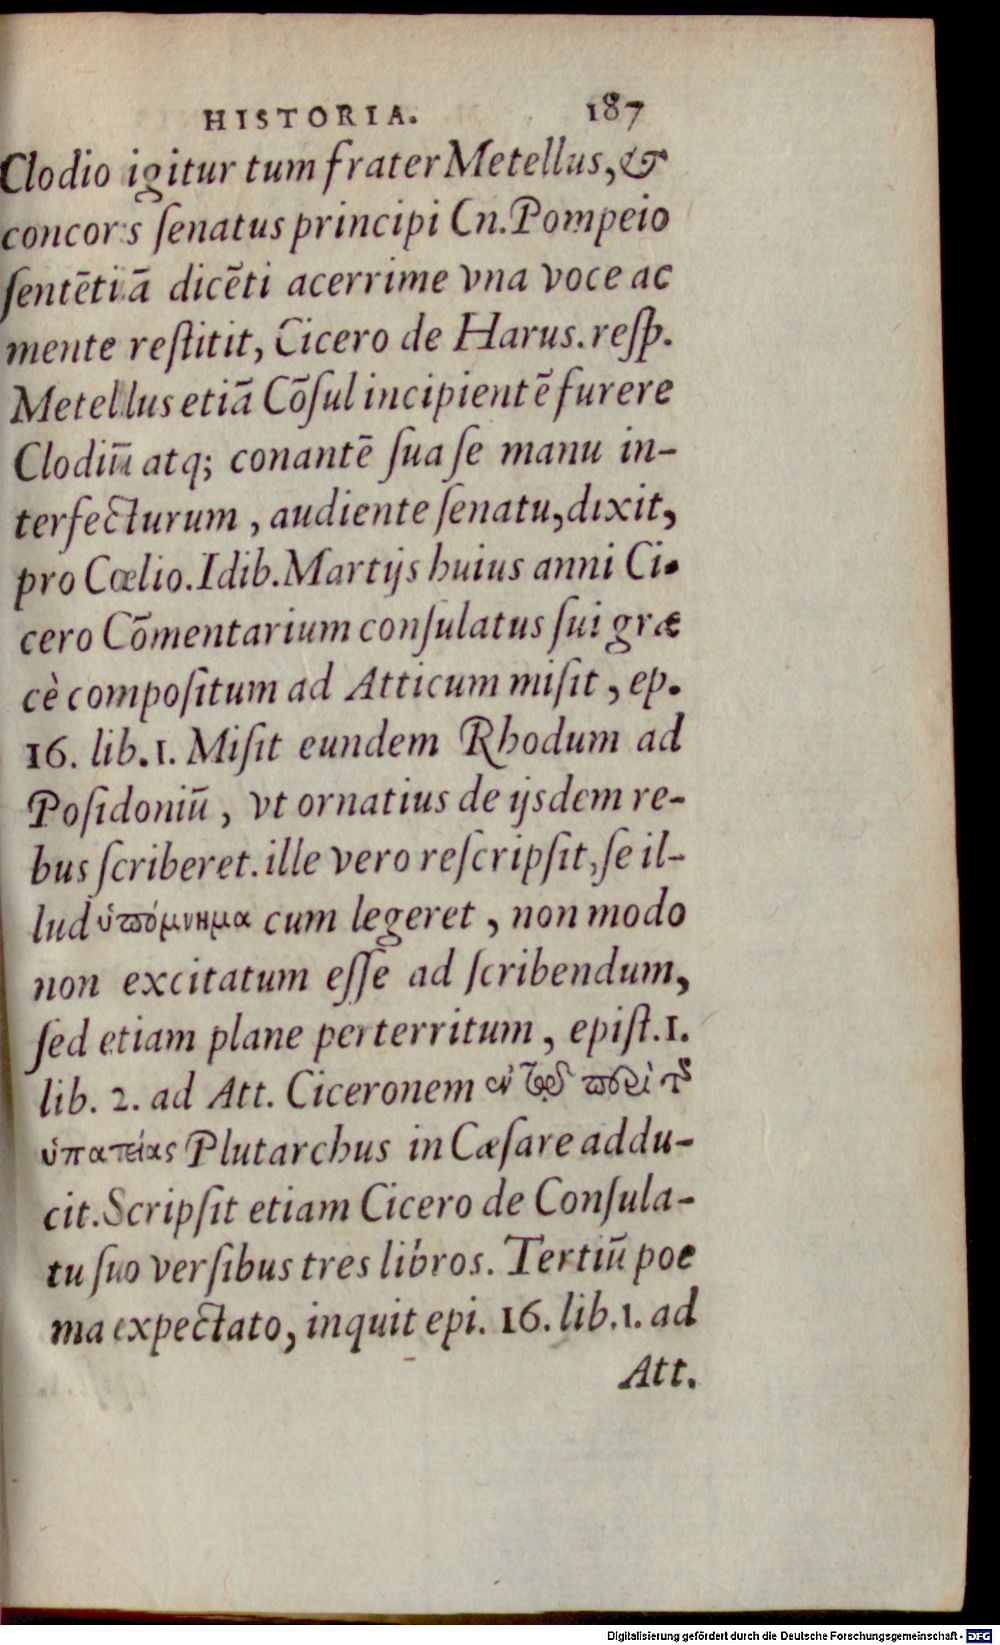 HISTORIA. 187
Clodio igitur tum frater Metellus, &
concors ſenatus principi Cn. Pompeio
ſentētiā dicēti acerrime vna voce ac
mente reſtitit, Cicero de Harus. reſp.
Metellus etiā Cōſul incipientē furere
Clodiū atq; conantē ſua ſe manu in-
terfecturum, audiente ſenatu, dixit,
pro Cœlio. Idib. Martijs huius anni Ci-
cero Cōmentarium conſulatus ſui græ
cè compoſitum ad Atticum miſit, ep.
16. lib. 1. Miſit eundem Rhodum ad
Poſidoniū, vt ornatius de ijsdem re-
bus ſcriberet. ille vero reſcripſit, ſe il-
lud ὑπόμνημα cum legeret, non modo
non excitatum eſſe ad ſcribendum,
ſed etiam plane perterritum, epiſt. 1.
lib. 2. ad Att. Ciceronem ἐν τῷ περὶ τῆς
ὑπατείας Plutarchus in Cæſare addu-
cit. Scripſit etiam Cicero de Conſula-
tu ſuo verſibus tres libros. Tertiū poe
ma expectato, inquit epi. 16. lib. 1. ad
Att.
Digitalisierung gefördert durch die Deutsche Forschungsgemeinschaft - DFG